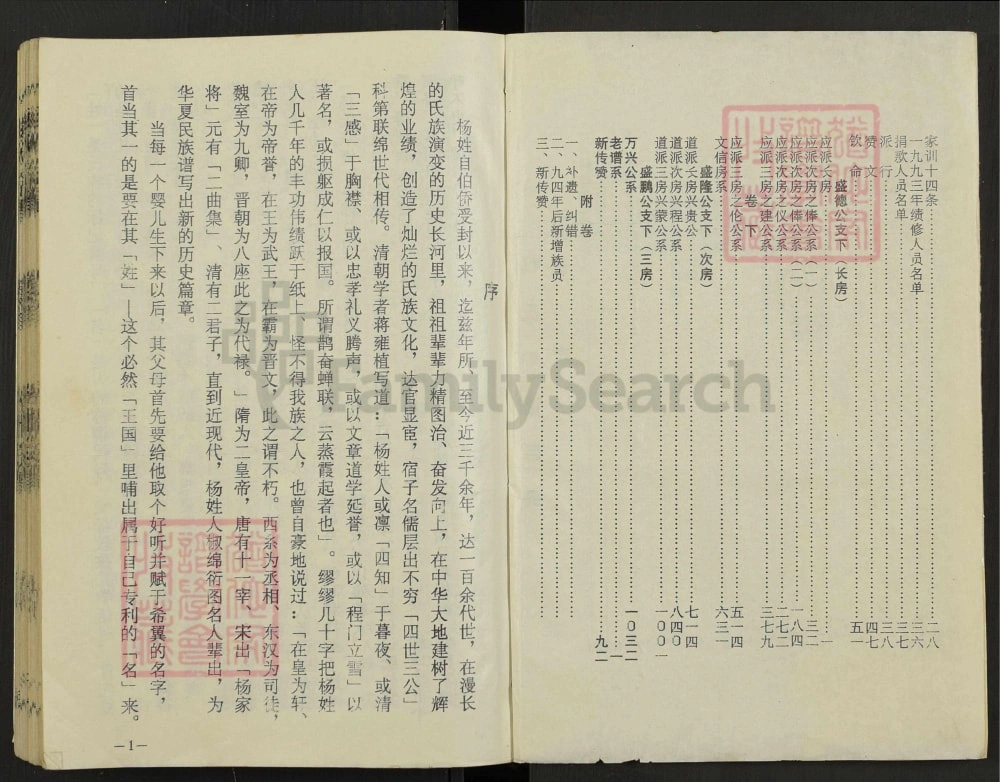 家训十四条……二八
一九九三年绩修人员名单……三六
捐款人员名单……三七
派行……三八
赞文……四七
钦命……五一
盛德公支下（长房）
应派长房……三二
应派次房之俸公系（一）……一八四
应派次房之俸公系（二）……二七二
应派次房之仪公系……三七九
应派三房之建公系
卷下
应派三房之伦公系……五一四
文信房系……六三一
盛隆公支下（次房）
道派长房兴贵公……七一四
道派次房兴程公系……八四〇
道派三房兴蒙公系……一〇〇一
盛鹏公支下（三房）
万兴公系……一〇三二
老谱系……一
新传赞……九二
附卷
一、补遗、纠错
二、九四年后新增族员
三、新传赞
序
杨姓自伯侨受封以来，迄兹年所、至今近三千余年，达一百余代世，在漫长
的氏族演变的历史长河里，祖祖辈辈力精图治、奋发向上，在中华大地建树了辉
煌的业绩，创造了灿烂的氏族文化，达官显宦，宿子名儒层出不穷「四世三公」
科第联绵世代相传。清朝学者蒋雍植写道：「杨姓人或凛「四知」于暮夜、或清
「三感」于胸襟、或以忠孝礼义腾声，或以文章道学延誉，或以「程门立雪」以
著名，或损躯成仁以报国。所谓鹊奋蝉联，云蒸霞起者也」。缪缪几十字把杨姓
人几千年的丰功伟绩跃于纸上、怪不得我族之人，也曾自豪地说过：「在皇为轩、
在帝为帝喾，在王为武王，在霸为晋文，此之谓不朽。西系为丞相、东汉为司徒，
魏室为九卿，晋朝为八座此之为代禄。」隋为二皇帝，唐有十一宰、宋出「杨家
将」元有「二曲集」、清有二君子，直到近现代，杨姓人椒绵衍图名人辈出，为
华夏民族谱写出新的历史篇章。
当每一个婴儿生下来以后，其父母首先要给他取个好听并赋于希翼的名字，
首当其一的是要在其「姓」—这个必然「王国」里哺出属于自己专利的「名」来。
—1—
FamilySearch